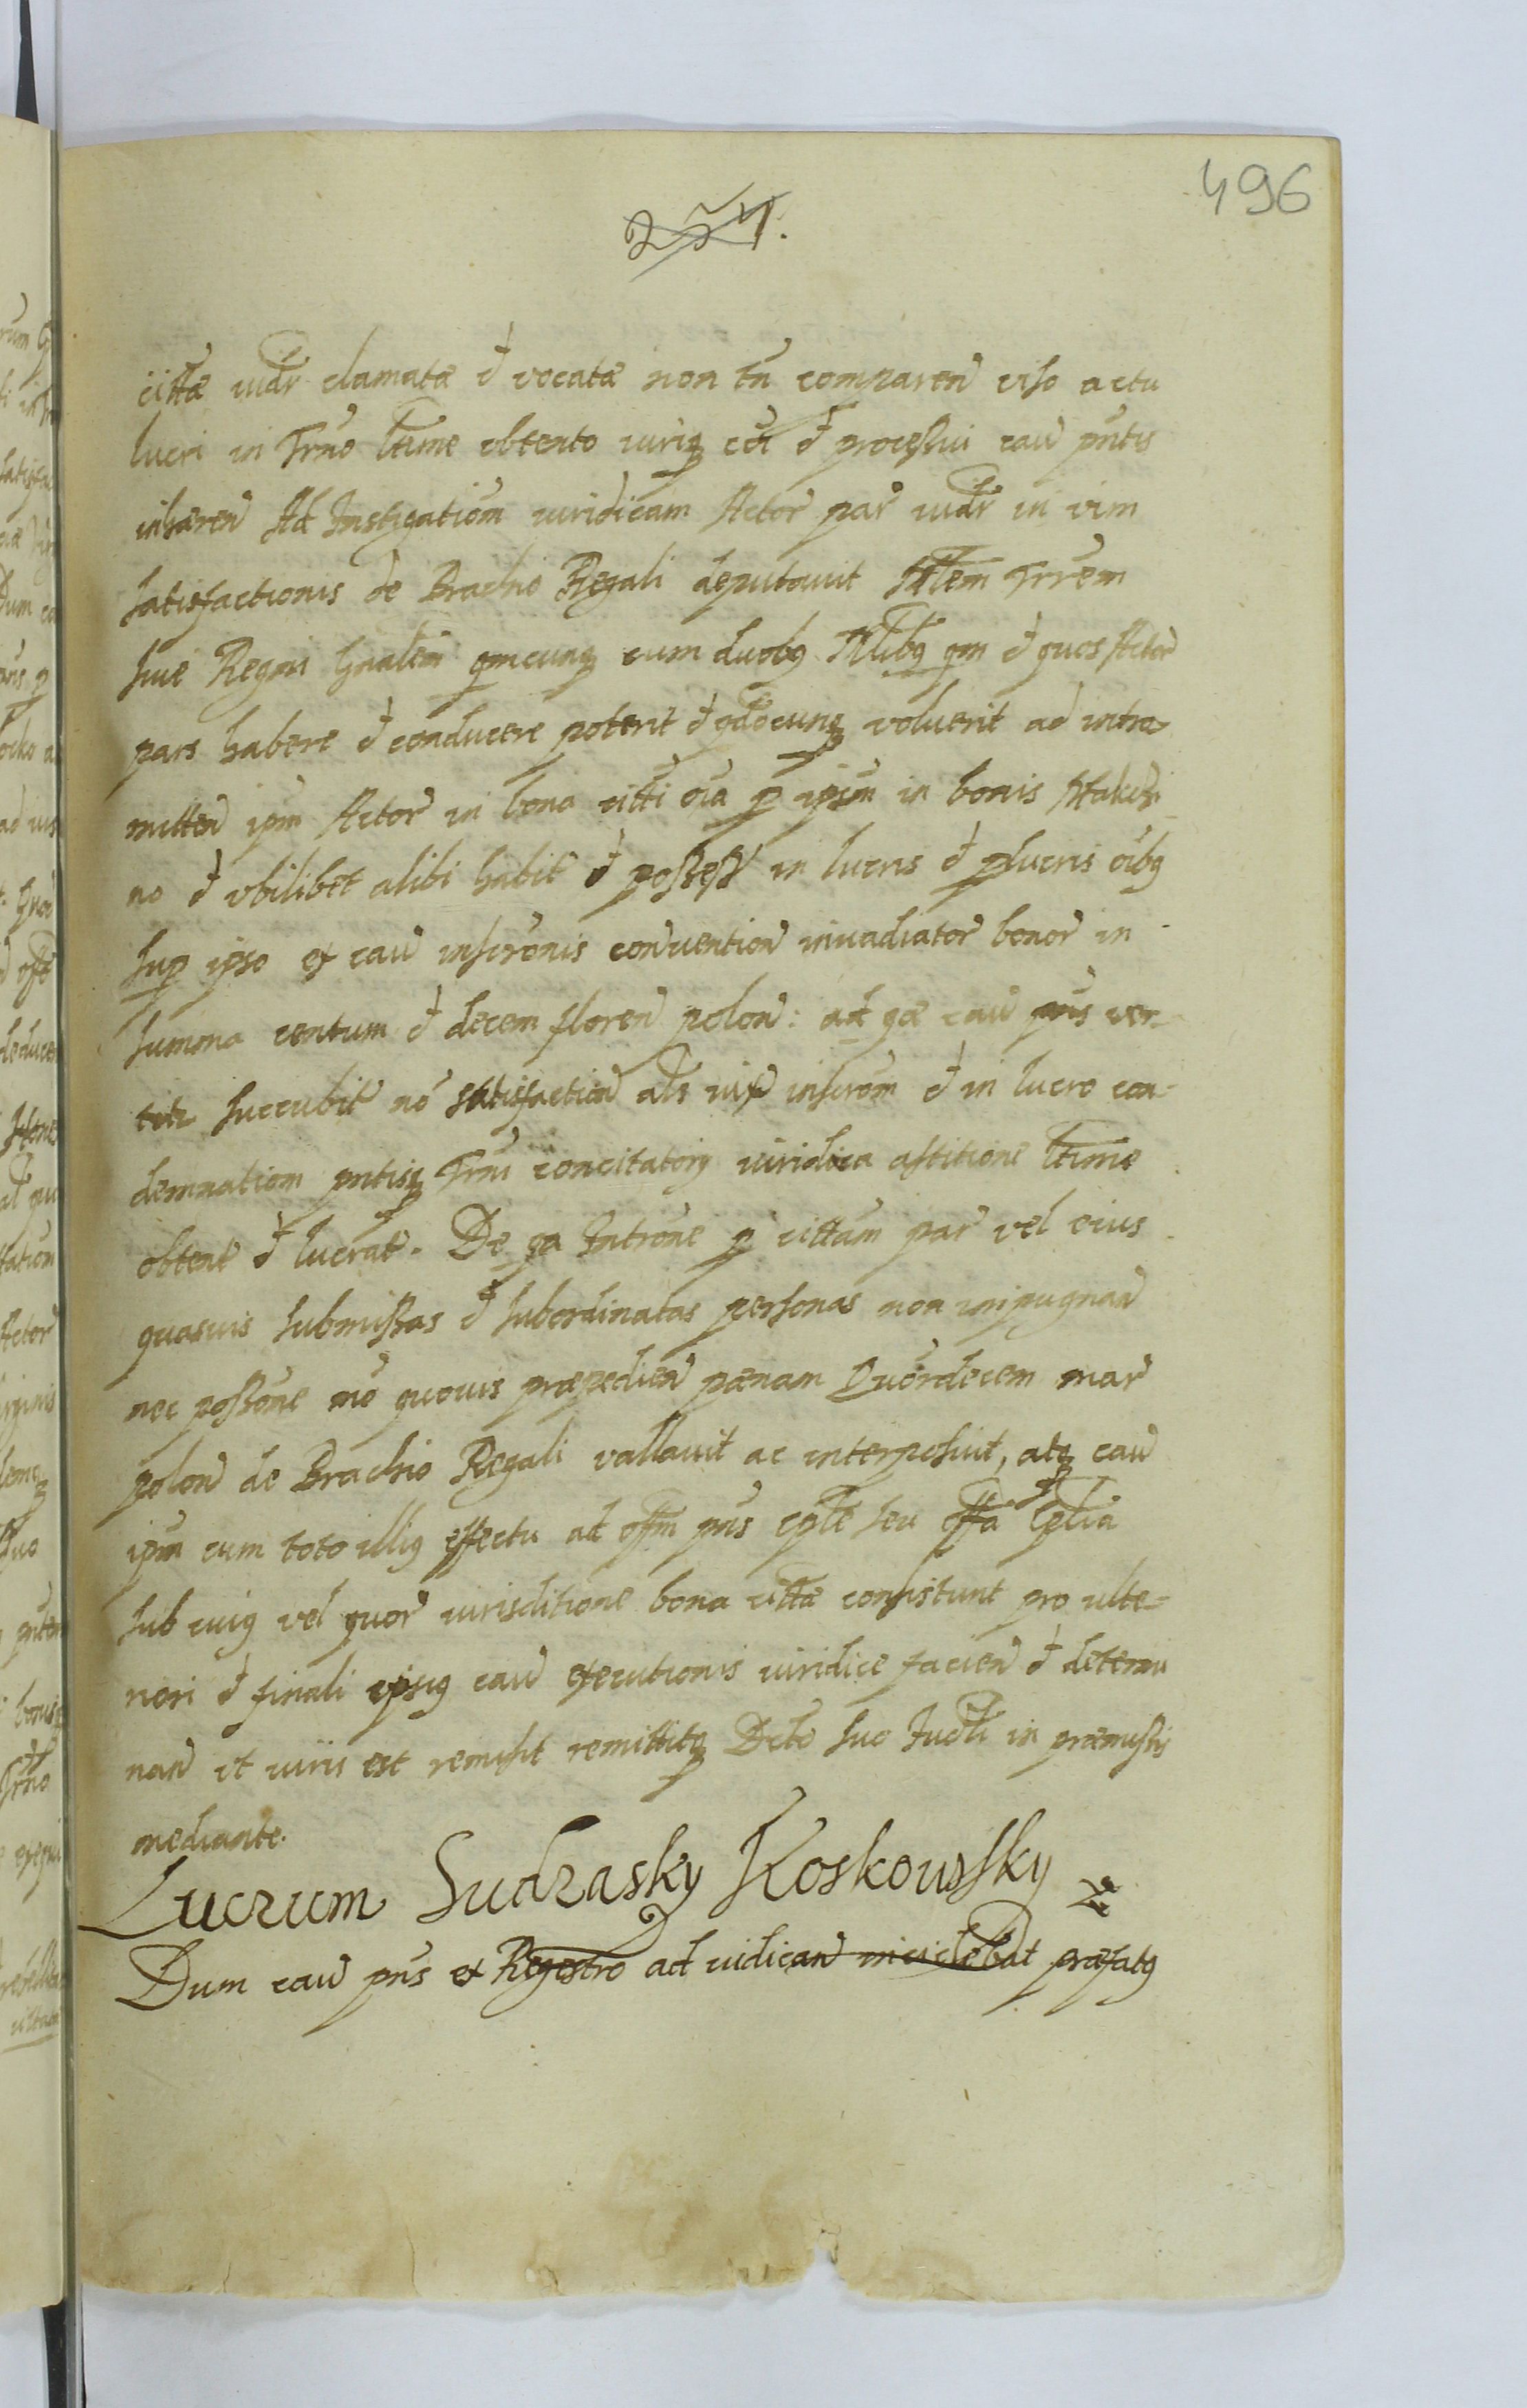 496
citta iudr clamata et vocata non tn comparen viso actu
lucri in Trno ltime obtento iuriq et processui cau pntis
inhæren Ad Instigationem iuridicam Actor par iudr in vim
satisfactionis de Brachio Regali deputavit Mlem Trrem
sive Regni Gnalem qmcunq cum duobq Nlibq qm et quos Actor
pars habere et conducere poterit et qdocunq voluerit ad intro
mitten ipm Actor in bona citti oia p ipsum in bonis
no et vbilibet alibi habit et possess in lucris et plucris oibq
sup ipso ex cau inscronis convention invadiator bonor in
summa centum et decem floren polon: ad qæ cau pns ver-
titr succubit no satisfaction als iuxt inscrom et in lucro con-
demnationm pntisq Trni concitatoriq iuridica astitione ltime
obtent et lucrat. De qa Introne p cittam par vel eius
quasvis submissas et subordinatas personas non impugnan
nec possone mo quovis præpedien pænam Quordecem mar
polon de Brachio Regali vallavit ac interposuit, atq cau
ipm cum toto illiq effectu ad offm pns cple seu offa cplia
sub cuiq vel quor iurisditione bona citta consistunt pro ulte-
riori et finali ipsiq cau executionis iuridice facien et determi
nan ut iuris est remisit remittitq Dcto suo Iudli in præmissis
mediante.
Lucrum Sudrasky Koskowsky
Dum cau pns ex Regestro ad iudican incidebat præfatq